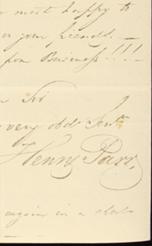 most happy to
your friends.
Business!!!
Sir
very obdt Servt
Henry Parr,
again in a